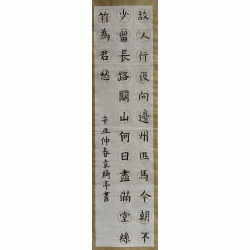 故人行役向邊州匹馬今朝不
少留長路關山何日盡滿堂絲
竹為君愁
辛丑仲春袁綺亭書